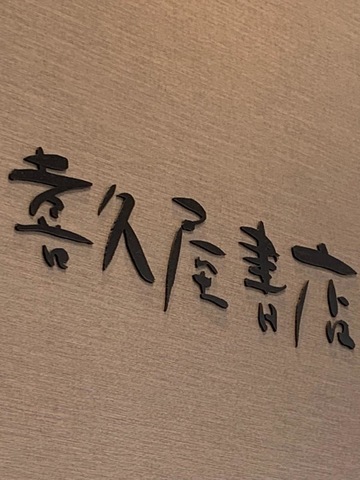 喜久屋書店